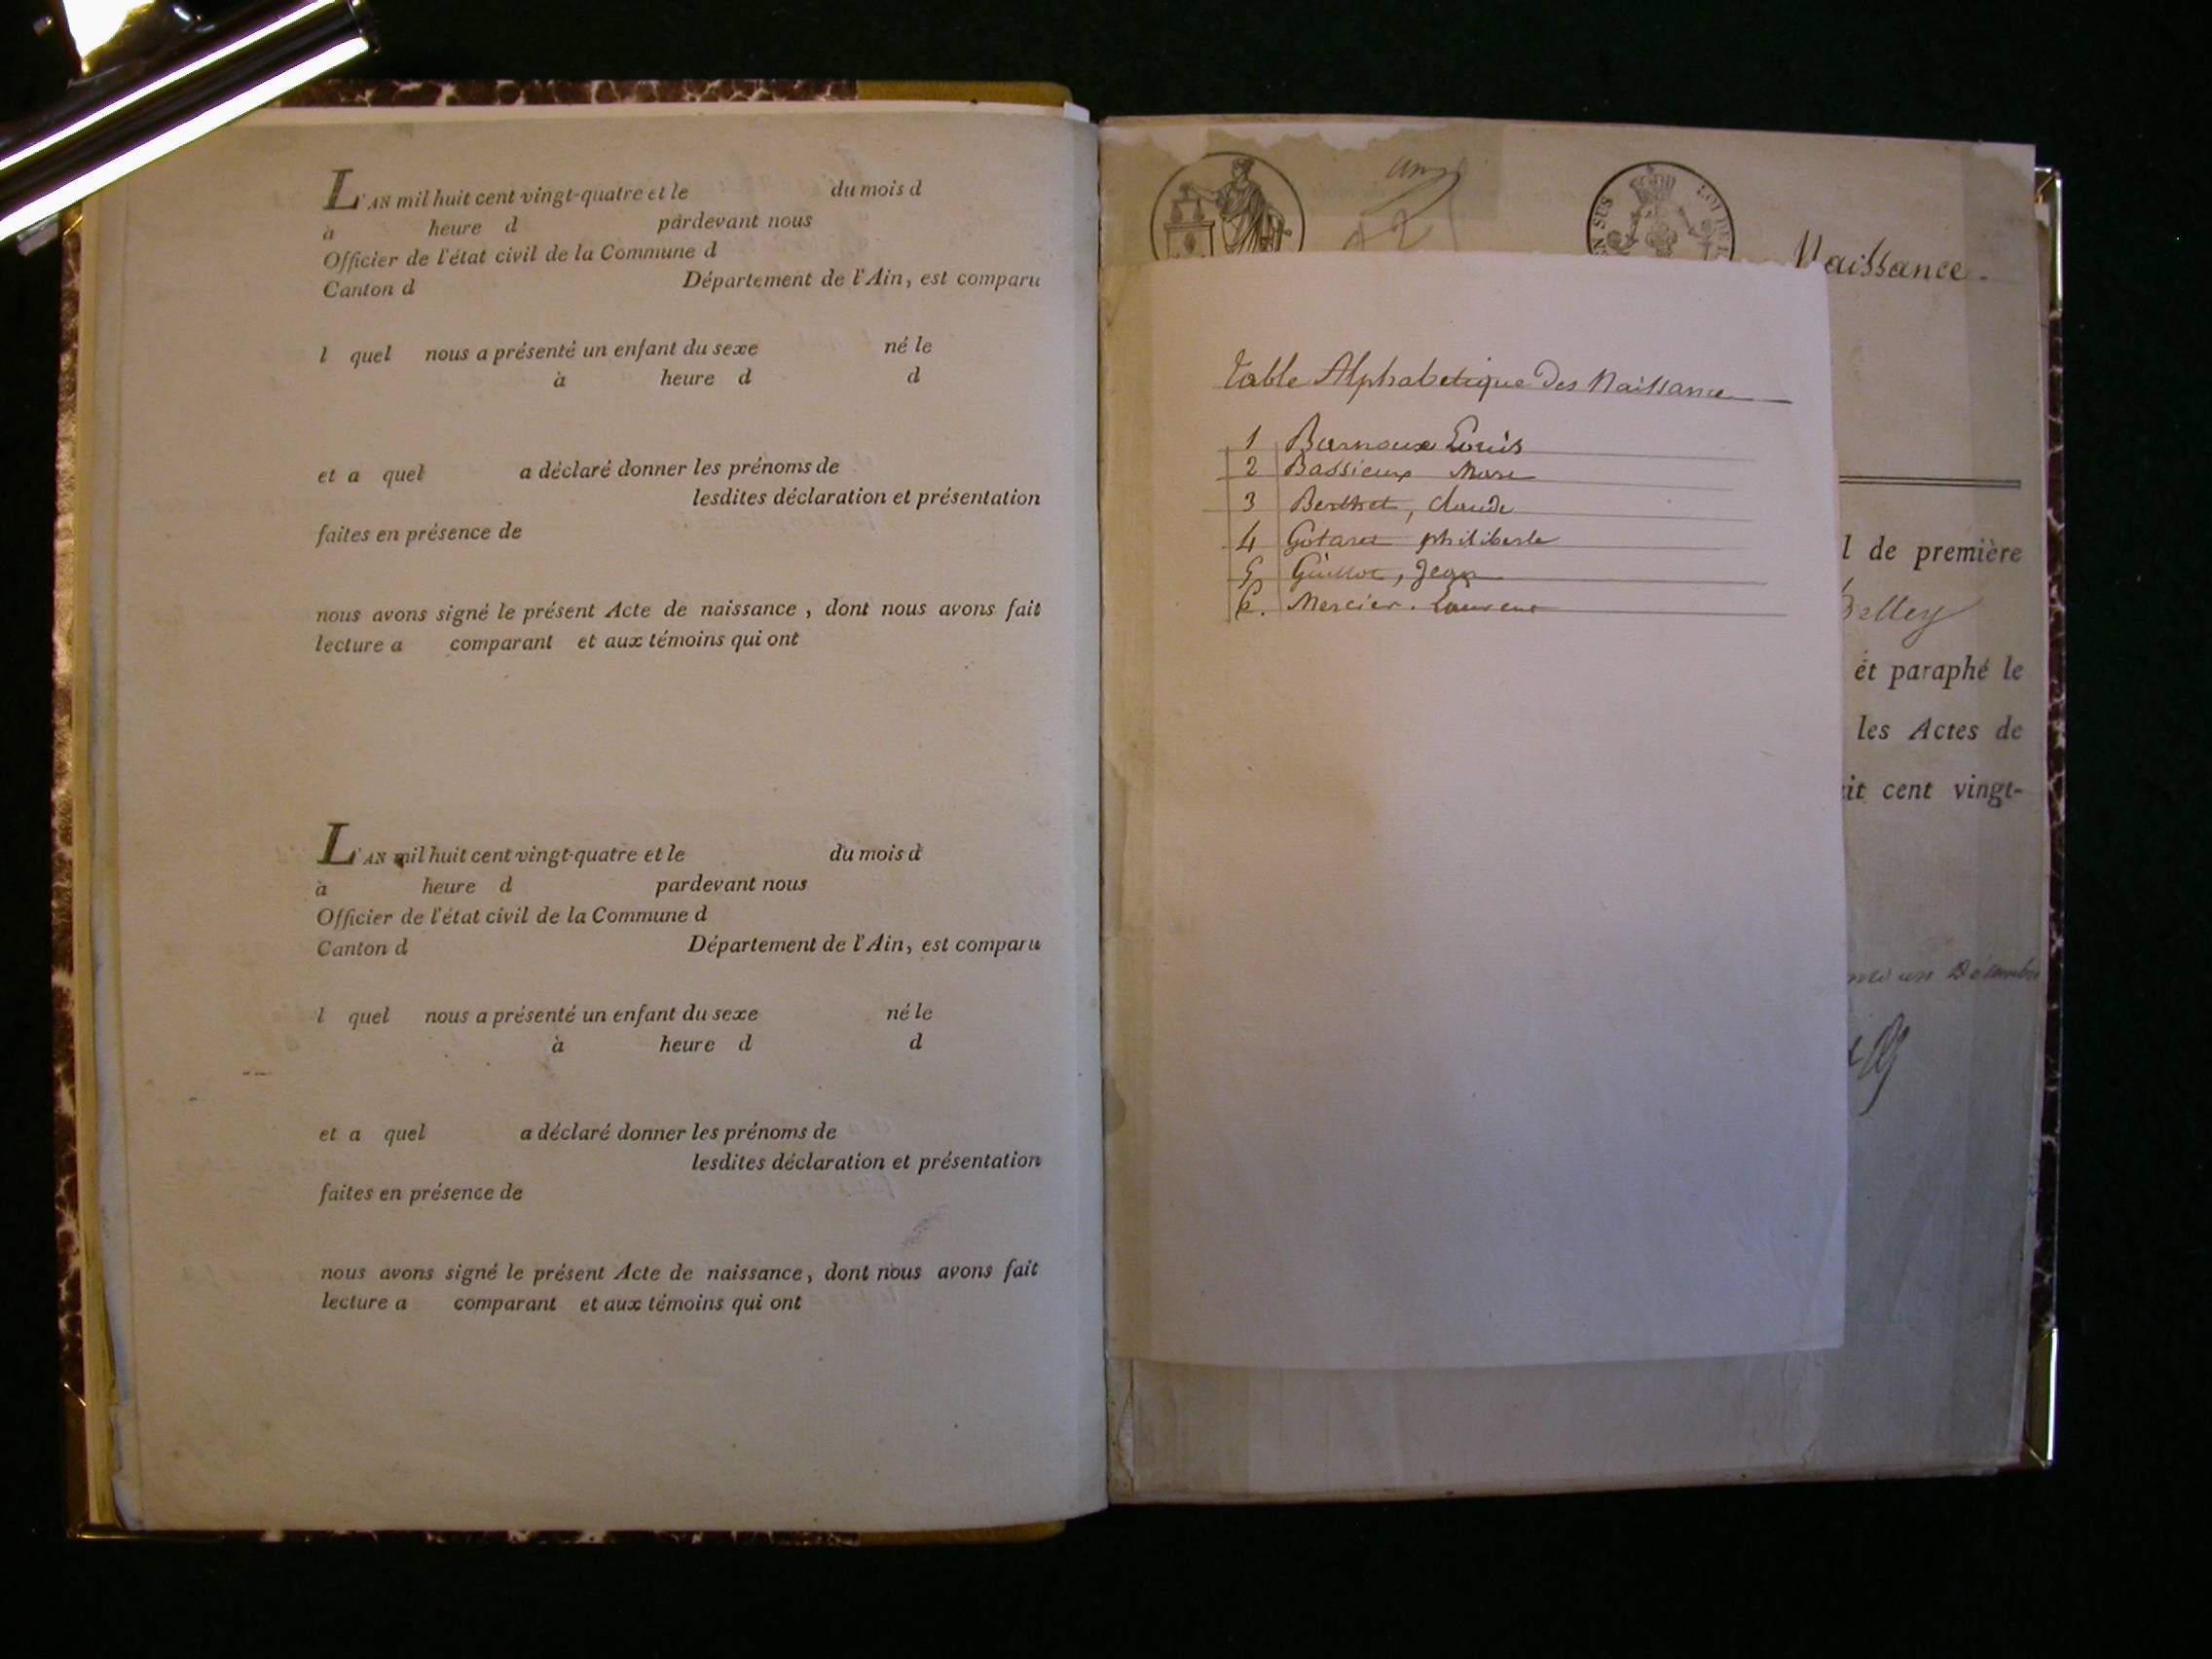 L'AN mil huit cent vingt-quatre et le du mois d
à heure d pardevant nous
Officier de l'état civil de la Commune d
Canton d Département de l'Ain, est comparu
l quel nous a présenté un enfant du sexe né le
à heure d d
et a quel a déclaré donner les prénoms de
lesdites déclaration et présentation
faites en présence de
nous avons signé le présent Acte de naissance, dont nous avons fait
lecture a comparant et aux témoins qui ont
L'AN mil huit cent vingt-quatre et le du mois d
à heure d pardevant nous
Officier de l'état civil de la Commune d
Canton d Département de l'Ain, est comparu
l quel nous a présenté un enfant du sexe né le
à heure d d
et a quel a déclaré donner les prénoms de
lesdites déclaration et présentation
faites en présence de
nous avons signé le présent Acte de naissance, dont nous avons fait
lecture a comparant et aux témoins qui ont
Naissance
Table Alphabetique Des Naissance
1 Barnoux Louis
2 Bassieux Marie
3 Berthet, Claude
4 Gotaret philiberte
5 Guillot, Jean
6. Mercier. Laurent
l de première
Belley
et paraphé le
les Actes de
it cent vingt-
un Décembre